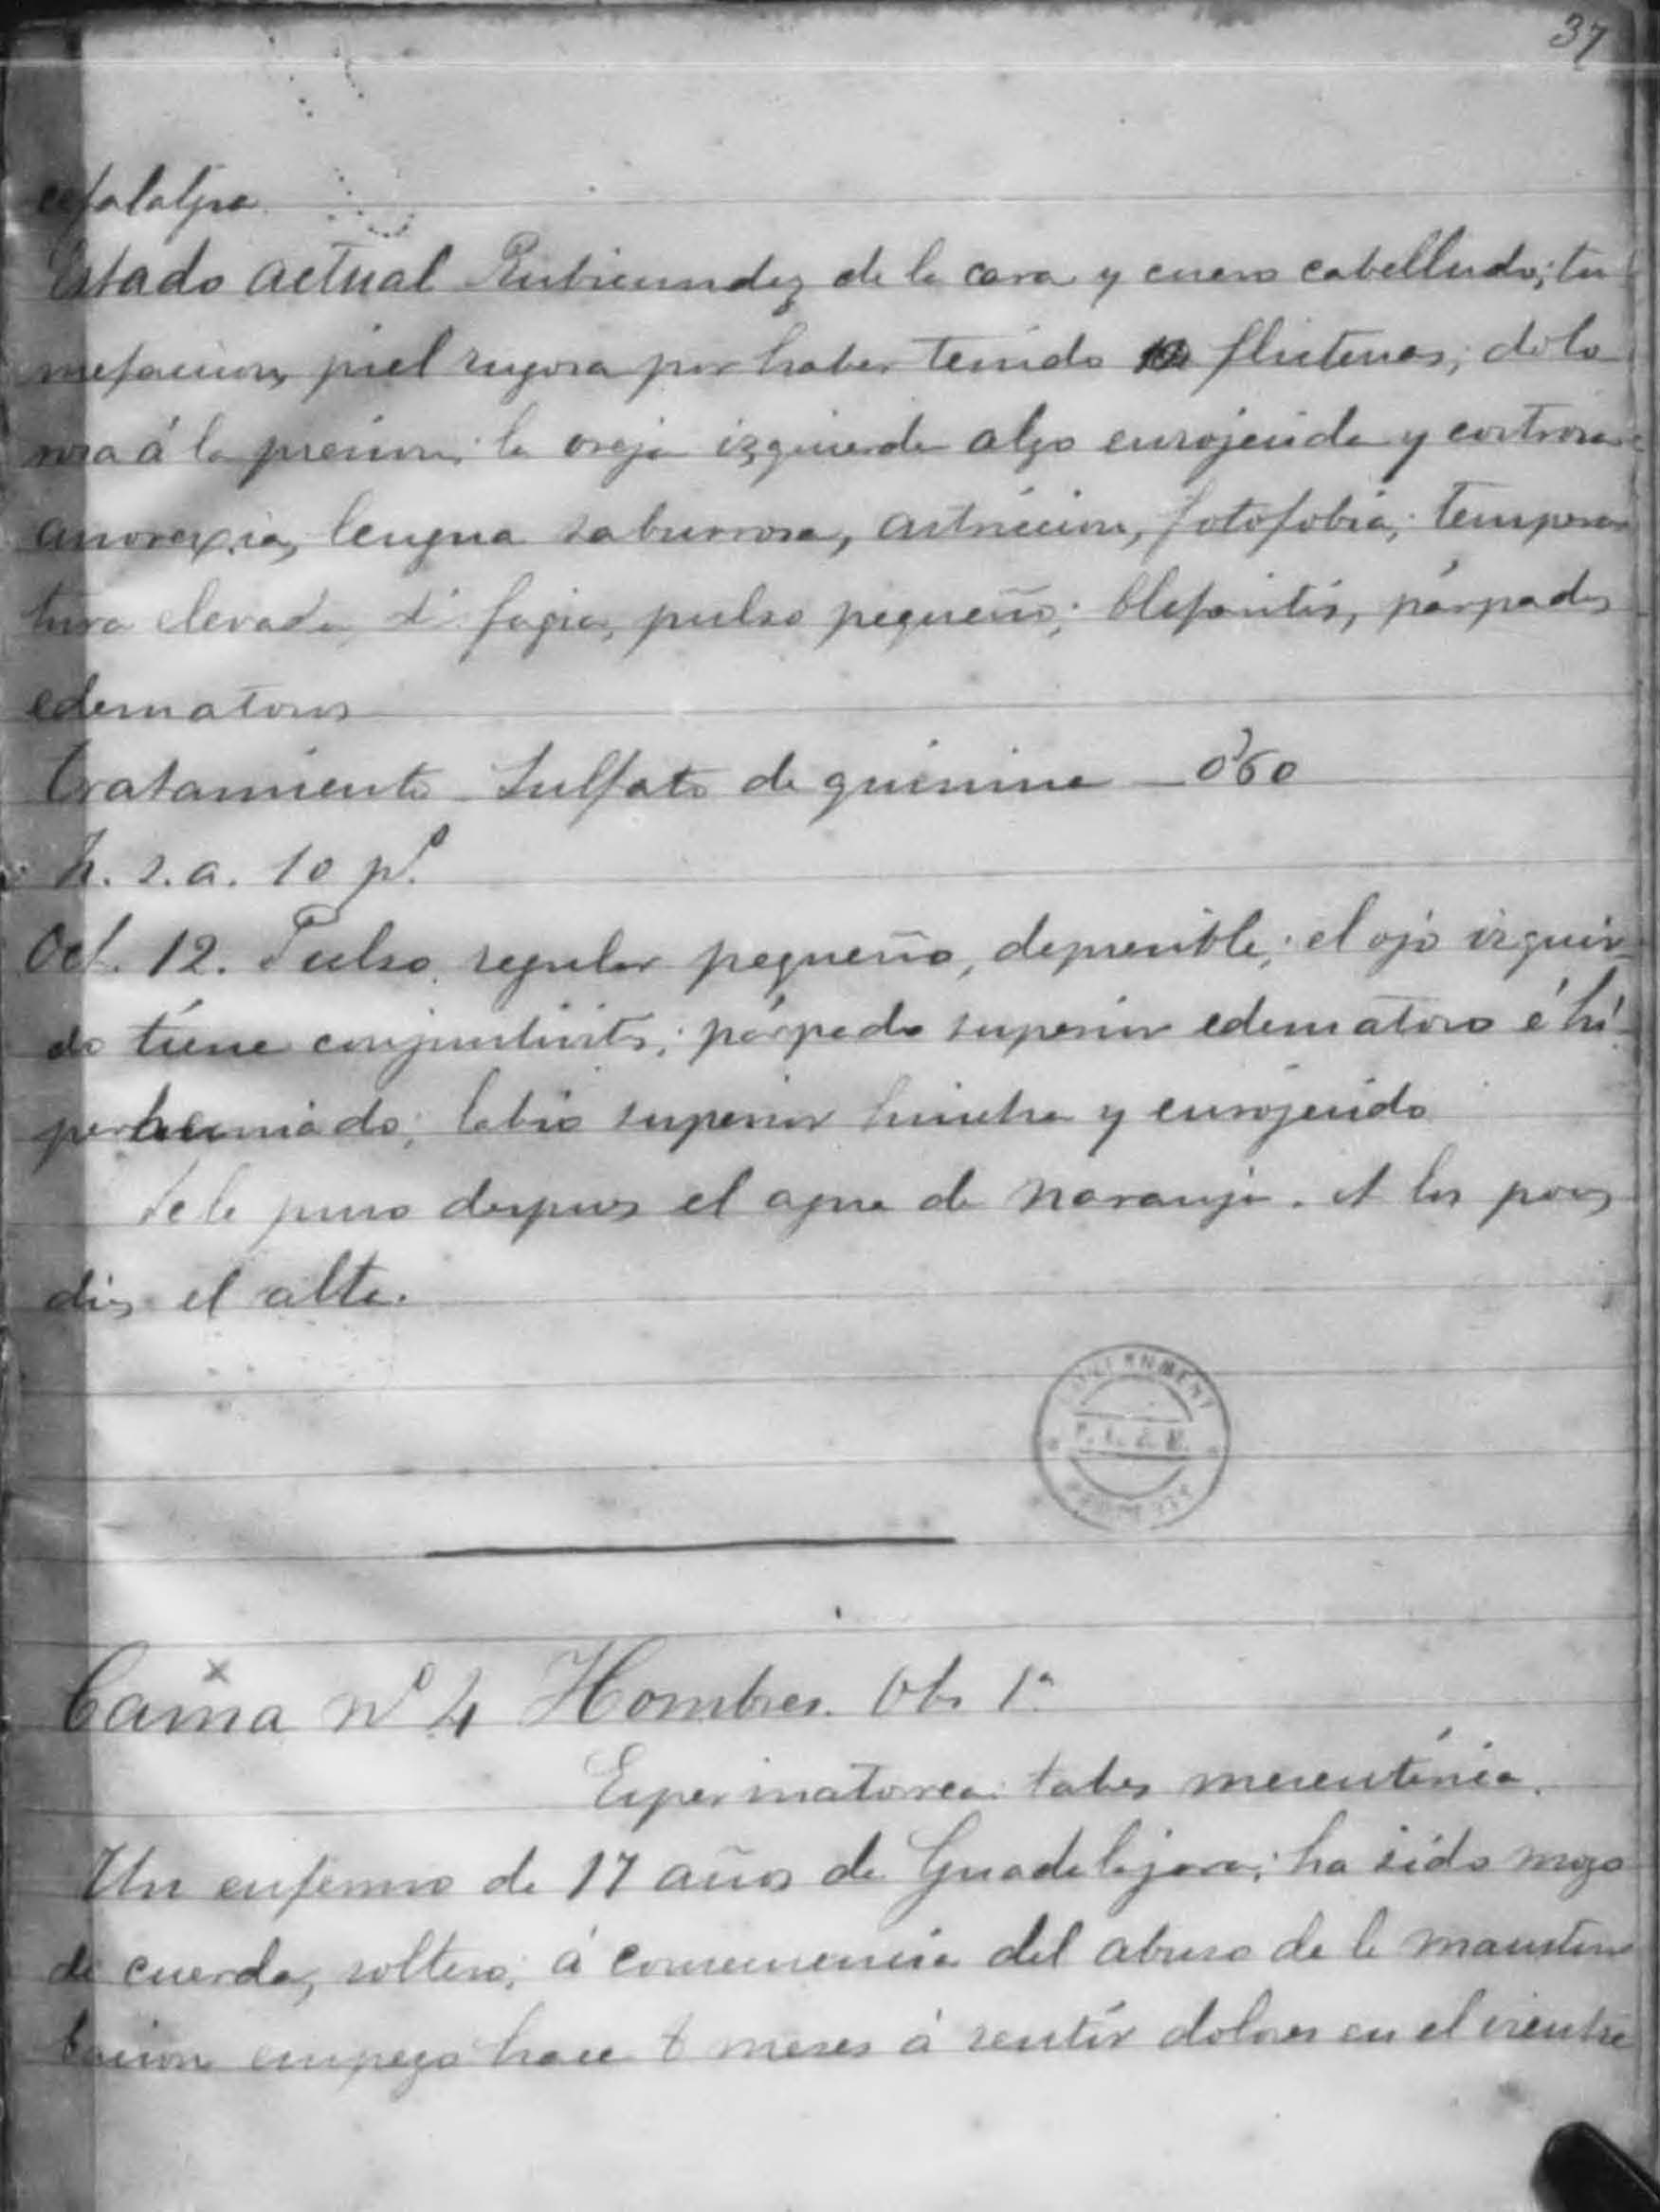 37
cefalalgia
Estado actual Rubicundez de la cara y cuero cabelludo; tu
mefaccion, piel rugosa por haber tenido flictenas; dolo
rosa á la presion; la oreja izquierda algo enrojecida y costrosa
anorexia, lengua saburrosa, astriccion, fotofobia; tempera
tura elevada, di fagia, pulso pequeño; blefaritis, párpados
edematosos
tratamiento - Sulfato de quinina — 0'60
h. s. a. 10 pº.
Oct. 12. Pulso regular pequeño, depresible; el ojo izquier-
do tiene conjuntivitis; párpado superior edematoso é hi-
perhemiado; labio superior hincha y enrojecido
Se le puso despues el agua de naranja. A los pocos
dias el alta.
GOVERNMENT
Cama Nº 4 Hombres. Obs 1ª
Espermatorrea: tabes mesentérica.
Un enfermo de 17 años de Guadalajara; ha sido mozo
de cuerda, soltero; á consecuencia del abuso de la mastur
bacion empezo hace 6 meses á sentir dolores en el vientre